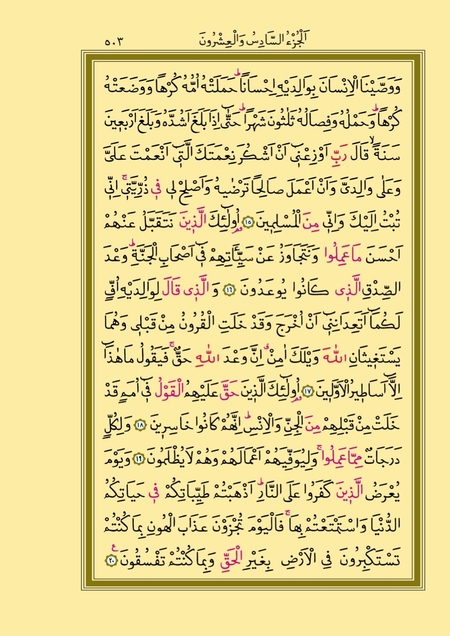 اَلْجُزْءُ السَّادِسُ وَالْعِشْرُونَ ٥٠٣
وَوَصَّيْنَا الْاِنْسَانَ بِوَالِدَيْهِ اِحْسَانًاۜ حَمَلَتْهُ اُمُّهُ كُرْهًا وَوَضَعَتْهُ
كُرْهًاۜ وَحَمْلُهُ وَفِصَالُهُ ثَلٰثُونَ شَهْرًاۜ حَتّٰٓى اِذَا بَلَغَ اَشُدَّهُ وَبَلَغَ اَرْبَع۪ينَ
سَنَةًۙ قَالَ رَبِّ اَوْزِعْن۪ٓي اَنْ اَشْكُرَ نِعْمَتَكَ الَّت۪ٓي اَنْعَمْتَ عَلَيَّ
وَعَلٰى وَالِدَيَّ وَاَنْ اَعْمَلَ صَالِحًا تَرْضٰيهُ وَاَصْلِحْ ل۪ي ف۪ي ذُرِّيَّت۪يۚ اِنّ۪ي
تُبْتُ اِلَيْكَ وَاِنّ۪ي مِنَ الْمُسْلِم۪ينَ ﴿١٥﴾ اُو۬لٰٓئِكَ الَّذ۪ينَ نَتَقَبَّلُ عَنْهُمْ
اَحْسَنَ مَا عَمِلُوا وَنَتَجَاوَزُ عَنْ سَيِّـَٔاتِهِمْ ف۪ٓي اَصْحَابِ الْجَنَّةِۜ وَعْدَ
الصِّدْقِ الَّذ۪ي كَانُوا يُوعَدُونَ ﴿١٦﴾ وَالَّذ۪ي قَالَ لِوَالِدَيْهِ اُفٍّ
لَكُمَٓا اَتَعِدَانِن۪ٓي اَنْ اُخْرَجَ وَقَدْ خَلَتِ الْقُرُونُ مِنْ قَبْل۪ي وَهُمَا
يَسْتَغ۪يثَانِ اللّٰهَ وَيْلَكَ اٰمِنْۗ اِنَّ وَعْدَ اللّٰهِ حَقٌّۚ فَيَقُولُ مَا هٰذَٓا
اِلَّٓا اَسَاط۪يرُ الْاَوَّل۪ينَ ﴿١٧﴾ اُو۬لٰٓئِكَ الَّذ۪ينَ حَقَّ عَلَيْهِمُ الْقَوْلُ ف۪ٓي اُمَمٍ قَدْ
خَلَتْ مِنْ قَبْلِهِمْ مِنَ الْجِنِّ وَالْاِنْسِۜ اِنَّهُمْ كَانُوا خَاسِر۪ينَ ﴿١٨﴾ وَلِكُلٍّ
دَرَجَاتٌ مِمَّا عَمِلُواۚ وَلِيُوَفِّيَهُمْ اَعْمَالَهُمْ وَهُمْ لَا يُظْلَمُونَ ﴿١٩﴾ وَيَوْمَ
يُعْرَضُ الَّذ۪ينَ كَفَرُوا عَلَى النَّارِۜ اَذْهَبْتُمْ طَيِّبَاتِكُمْ ف۪ي حَيَاتِكُمُ
الدُّنْيَا وَاسْتَمْتَعْتُمْ بِهَاۚ فَالْيَوْمَ تُجْزَوْنَ عَذَابَ الْهُونِ بِمَا كُنْتُمْ
تَسْتَكْبِرُونَ فِي الْاَرْضِ بِغَيْرِ الْحَقِّ وَبِمَا كُنْتُمْ تَفْسُقُونَ۟ ﴿٢٠﴾